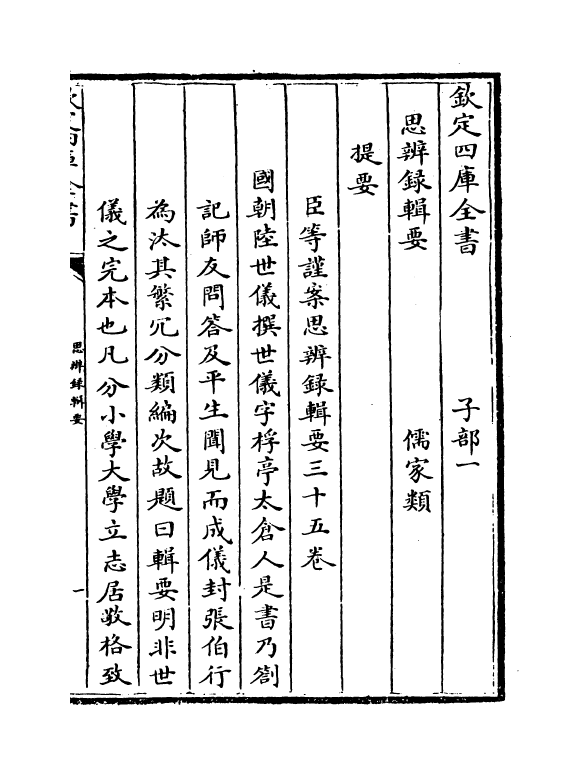 欽定四庫全書　子部一
思辨録輯要　儒家類
提要
臣等謹案思辨録輯要三十五卷
國朝陸世儀撰世儀字桴亭太倉人是書乃劄
記師友問答及平生聞見而成儀封張伯行
為汰其繁冗分類編次故題曰輯要明非世
儀之完本也凡分小學大學立志居敬格致
思辨録輯要
一